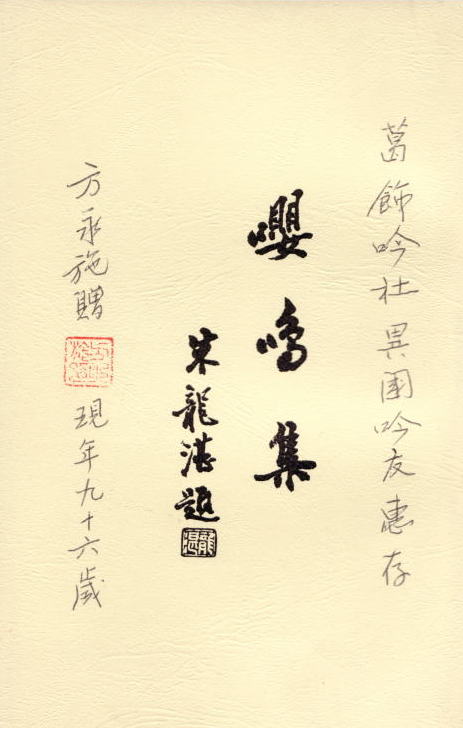 葛飾吟社異國吟友惠存
嚶鳴集
朱龍湛題
龍湛
方永施贈
現年九十六歲